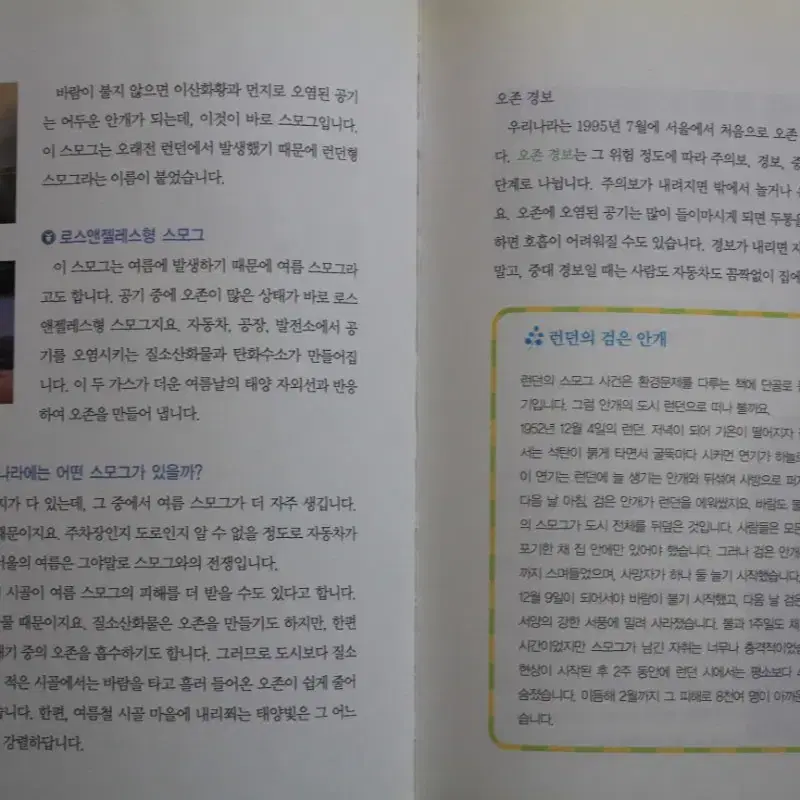 바람이 불지 않으면 이산화황과 먼지로 오염된 공기
는 어두운 안개가 되는데, 이것이 바로 스모그입니다.
이 스모그는 오래전 런던에서 발생했기 때문에 런던형
스모그라는 이름이 붙었습니다.
로스앤젤레스형 스모그
이 스모그는 여름에 발생하기 때문에 여름 스모그라
고도 합니다. 공기 중에 오존이 많은 상태가 바로 로스
앤젤레스형 스모그지요. 자동차, 공장, 발전소에서 공
기를 오염시키는 질소산화물과 탄화수소가 만들어집
니다. 이 두 가스가 더운 여름날의 태양 자외선과 반응
하여 오존을 만들어 냅니다.
나라에는 어떤 스모그가 있을까?
지가 다 있는데, 그 중에서 여름 스모그가 더 자주 생깁니다.
때문이지요. 주차장인지 도로인지 알 수 없을 정도로 자동차가
서울의 여름은 그야말로 스모그와의 전쟁입니다.
시골이 여름 스모그의 피해를 더 받을 수도 있다고 합니다.
물 때문이지요. 질소산화물은 오존을 만들기도 하지만, 한편
대기 중의 오존을 흡수하기도 합니다. 그러므로 도시보다 질소
적은 시골에서는 바람을 타고 흘러 들어온 오존이 쉽게 줄어
습니다. 한편, 여름철 시골 마을에 내리쬐는 태양빛은 그 어느
강렬하답니다.
오존 경보
우리나라는 1995년 7월에 서울에서 처음으로 오존
다. 오존 경보는 그 위험 정도에 따라 주의보, 경보, 중
단계로 나뉩니다. 주의보가 내려지면 밖에서 놀거나
요. 오존에 오염된 공기는 많이 들이마시게 되면 두통을
하면 호흡이 어려워질 수도 있습니다. 경보가 내리면 자
말고, 중대 경보일 때는 사람도 자동차도 꼼짝없이 집에
런던의 검은 안개
런던의 스모그 사건은 환경문제를 다루는 책에 단골로
기입니다. 그럼 안개의 도시 런던으로 떠나 볼까요.
1952년 12월 4일의 런던. 저녁이 되어 기온이 떨어지자
서는 석탄이 붉게 타면서 굴뚝마다 시커먼 연기가 하늘로
이 연기는 런던에 늘 생기는 안개와 뒤섞여 사방으로 퍼져
다음 날 아침, 검은 안개가 런던을 에워쌌지요. 바람도 불
의 스모그가 도시 전체를 뒤덮은 것입니다. 사람들은 모든
포기한 채 집 안에만 있어야 했습니다. 그러나 검은 안개
까지 스며들었으며, 사망자가 하나 둘 늘기 시작했습니다.
12월 9일이 되어서야 바람이 불기 시작했고, 다음 날 검은
서양의 강한 서풍에 밀려 사라졌습니다. 불과 1주일도 채
시간이었지만 스모그가 남긴 자취는 너무나 충격적이었습
현상이 시작된 후 2주 동안에 런던 시에서는 평소보다 4
숨졌습니다. 이듬해 2월까지 그 피해로 8천여 명이 아까운
습니다.